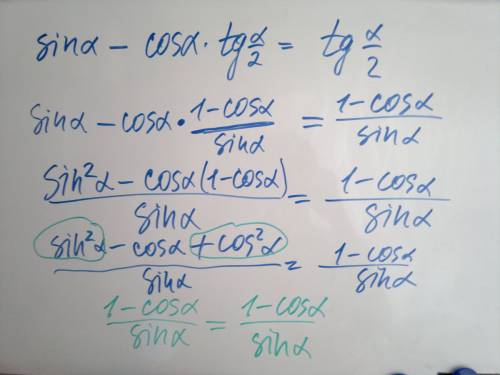 sinα − cosα · tg α/2 = tg α/2
sinα − cosα · (1−cosα)/sinα = (1−cosα)/sinα
(sin²α − cosα(1−cosα))/sinα = (1−cosα)/sinα
(sin²α − cosα + cos²α)/sinα = (1−cosα)/sinα
(1−cosα)/sinα = (1−cosα)/sinα